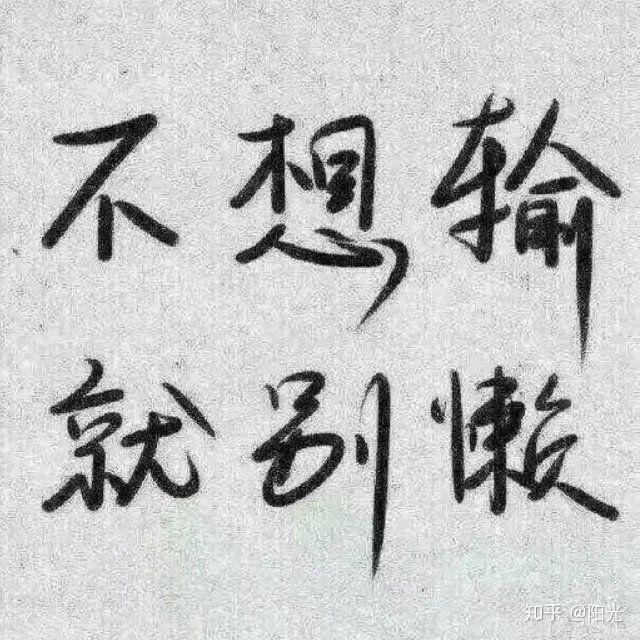 不想输
就别懒
知乎 @阳光